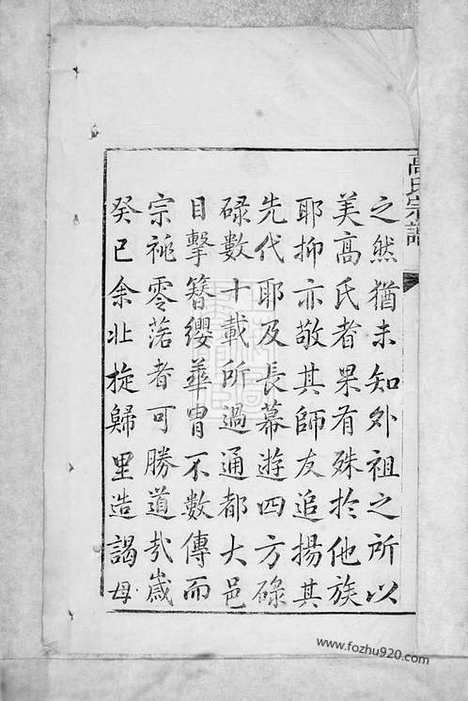 高氏宗譜
之然猶未知外祖之所以
美高氏者果有殊於他族
耶抑亦敬其師友追揚其
先代耶及長幕遊四方碌
碌數十載所過通都大邑
目擊簪纓華胄不數傳而
宗祧零落者可勝道哉歲
癸巳余北旋歸里造謁母
www.fozhu920.com